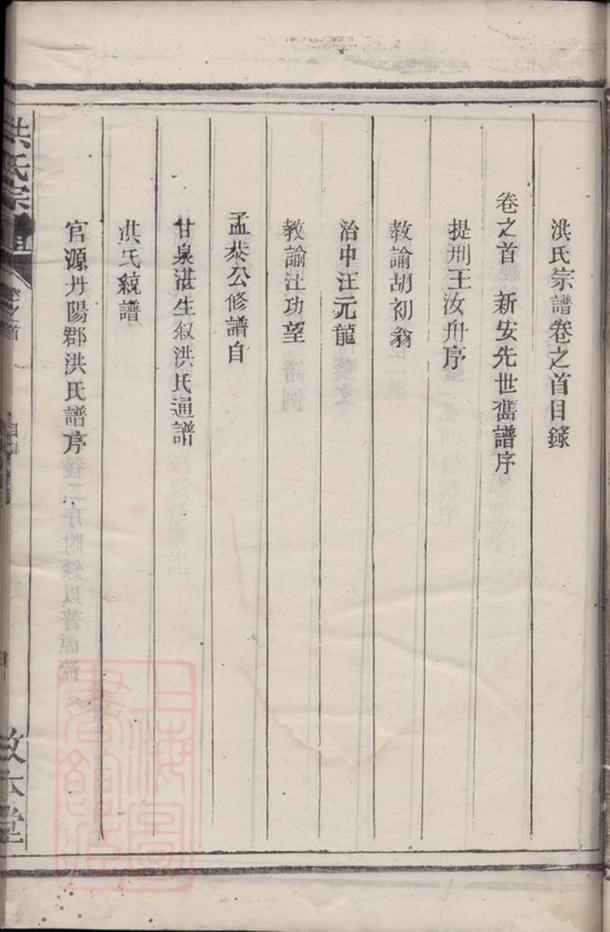 洪氏宗譜卷之首目錄
卷之首　新安先世舊譜序
提刑王汝舟序
教諭胡初翁
治中汪元龍
教諭汪功望
孟恭公修譜自
甘泉湛生叙洪氏通譜
洪氏統譜
官源丹陽郡洪氏譜序
洪氏宗譜
卷之首
目錄
敦本堂
上海圖書館藏